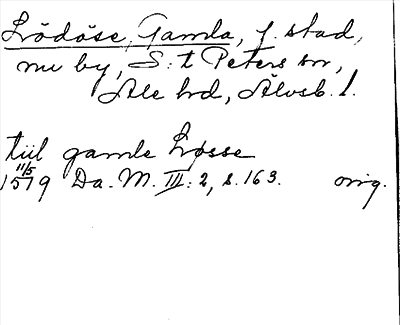 Lödöse, Gamla, f. stad,
nu by, S:t Peters sn,
Ale hd, Älvsb. l.
till gamle Løsse
11/5
1519 Da. M. III: 2, s. 163. orig.